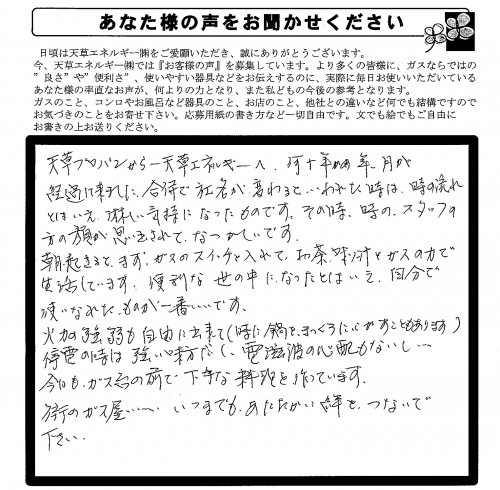 あなた様の声をお聞かせください
日頃は天草エネルギー㈱をご愛顧いただき、誠にありがとうございます。
今、天草エネルギー㈱では『お客様の声』を募集しています。より多くの皆様に、ガスならではの
”良さ”や”便利さ”、使いやすい器具などをお伝えするのに、実際に毎日お使いいただいている
あなた様の率直なお声が、何よりの力となり、また私どもの今後の参考となります。
ガスのこと、コンロやお風呂など器具のこと、お店のこと、他社との違いなど何でも結構ですので
お気づきのことをお寄せ下さい。応募用紙の書き方など一切自由です。文でも絵でもご自由に
お書きの上お送りください。
天草プロパンから天草エネルギーへ、何十年の年月が
経過し来ました。合併で社名が変わるといわれた時は、時の流れ
とはいえ淋しい気持になったものです。その時、時の、スタッフの
方の顔が思い出されて、なつかしいです。
朝起きると、まず、ガスのスイッチを入れて、お茶、味噌汁とガスの力で
生活しています。便利な世の中になったとはいえ、自分で
使いなれたものが一番いいです。
火加強弱も自由に出来て(時に鍋をまっくろにこがすこともあります)
停電の時は強い味方だし、電磁波の心配もないし…
今日も、ガス台の前で下手な料理を作っています。
街のガス屋……いつまでも、あたたかい絆を、つないで
下さい。